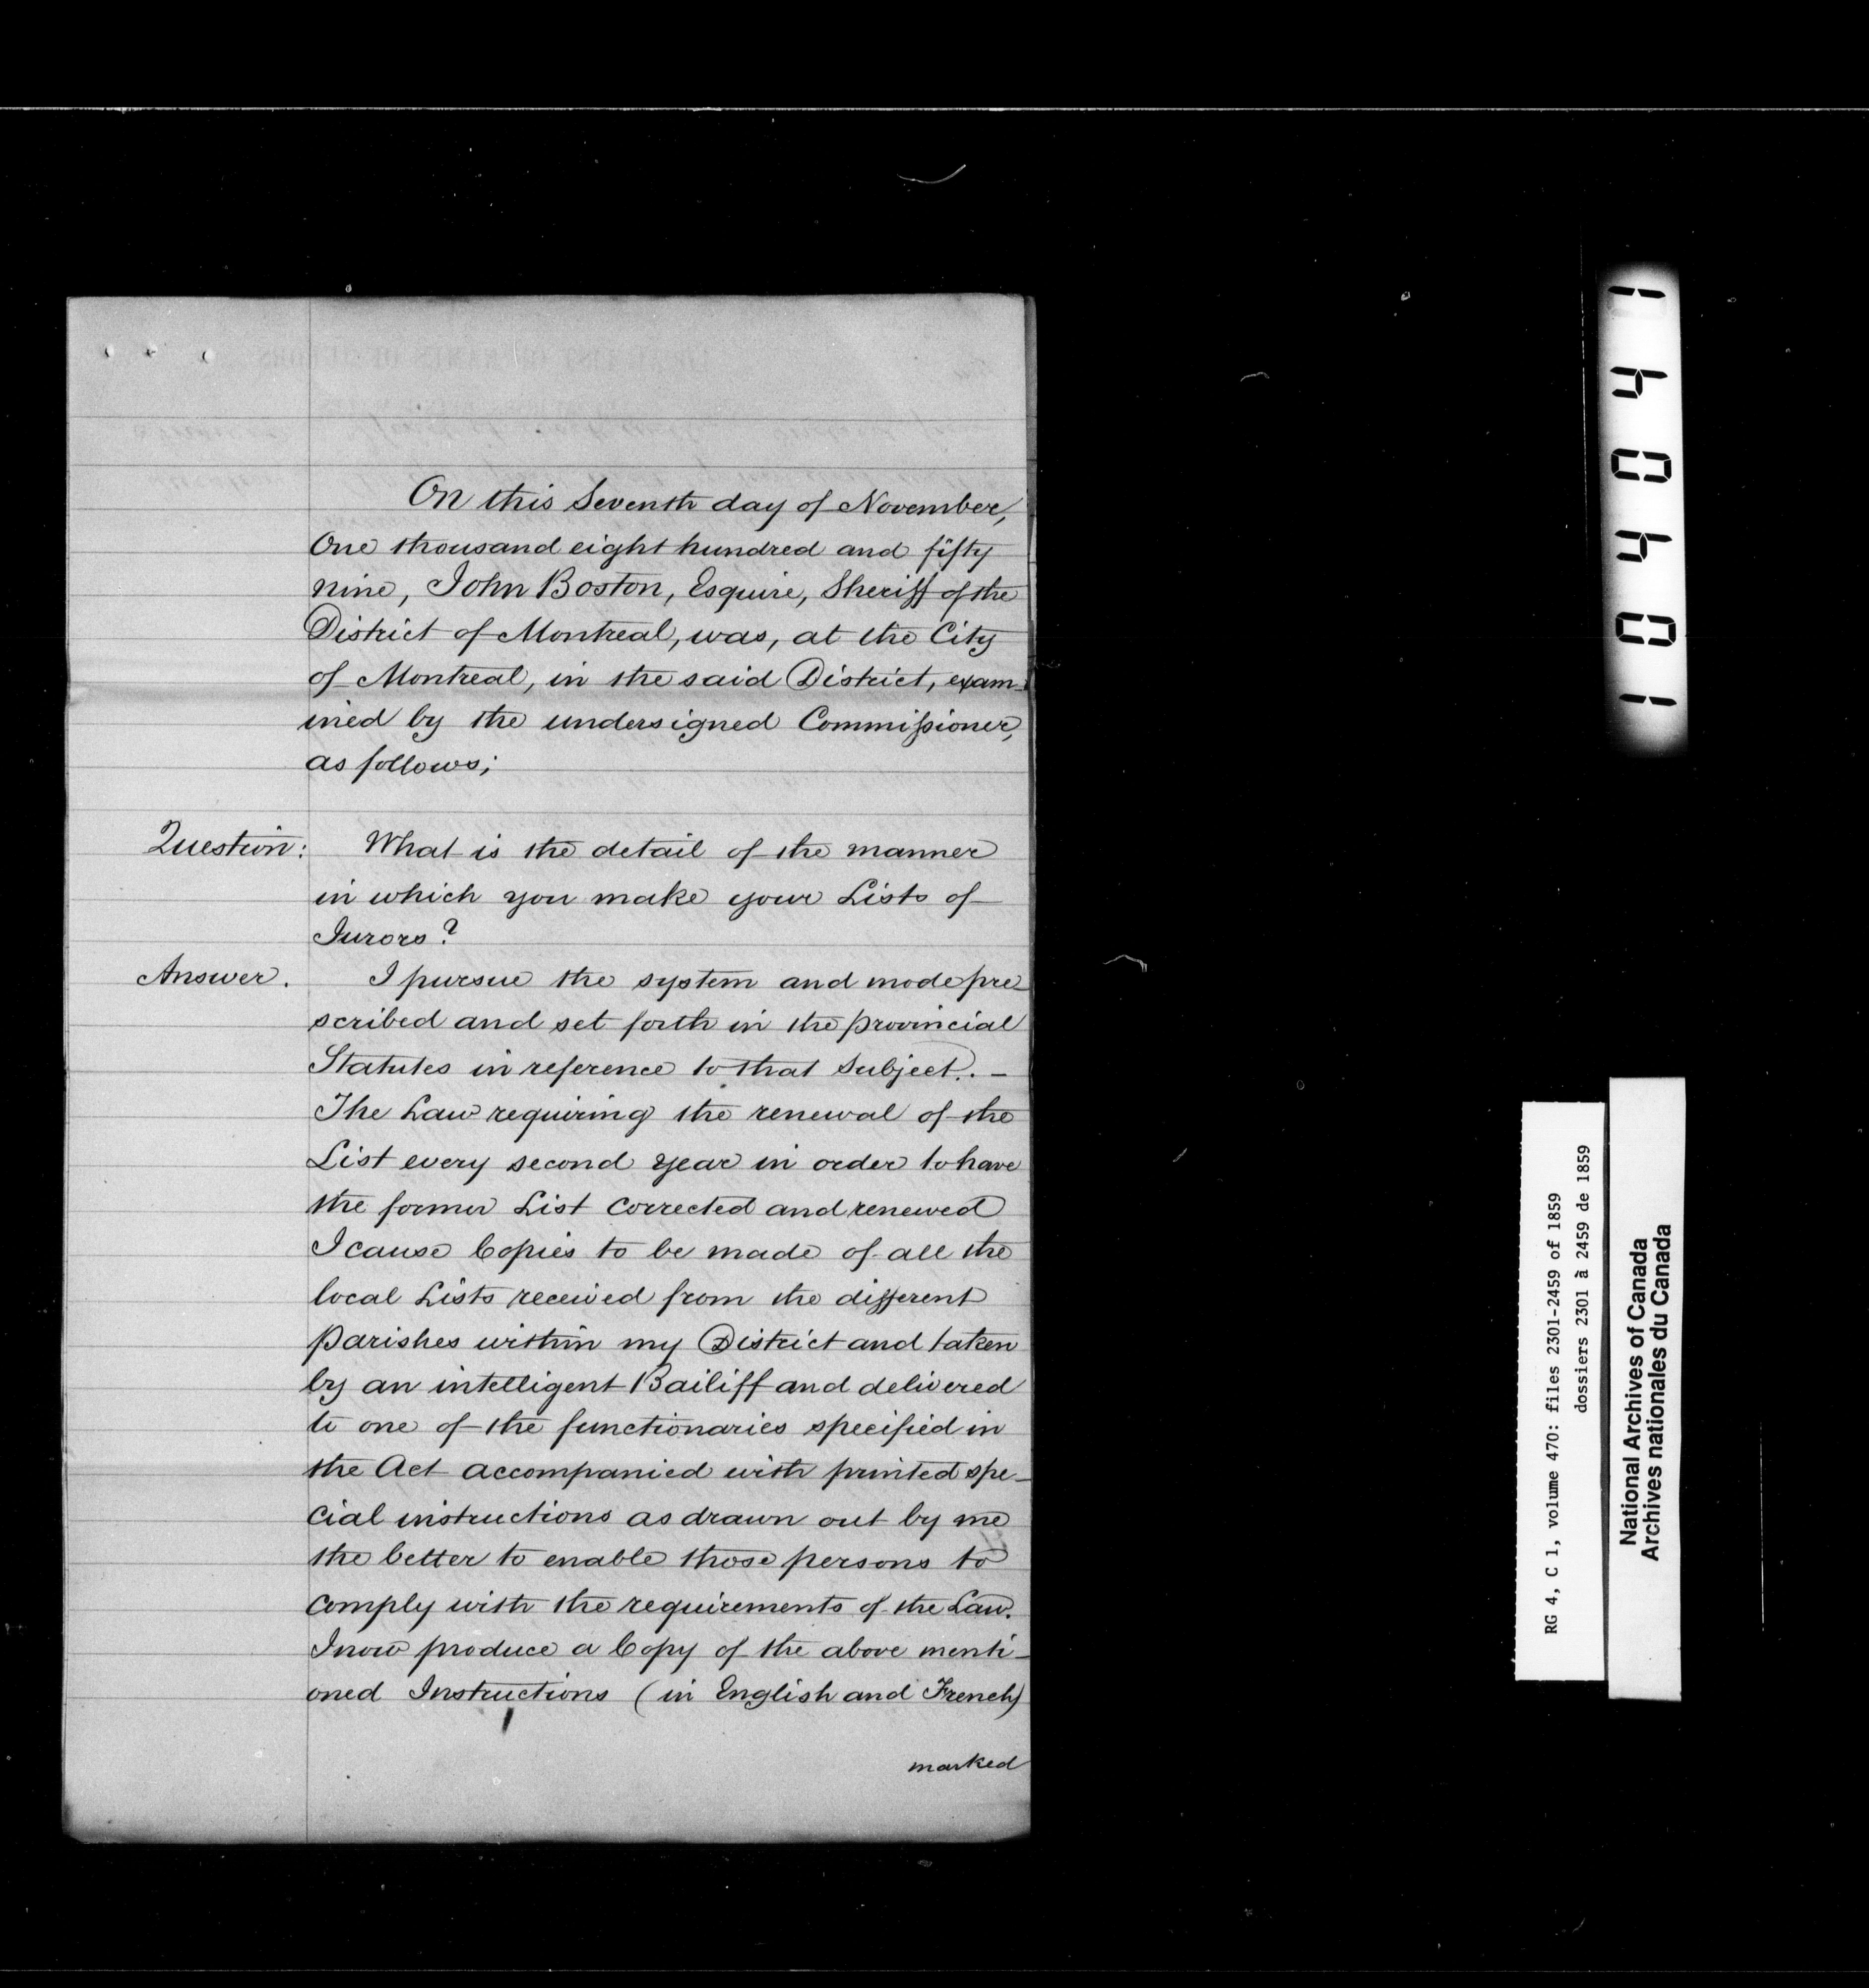 On this Seventh day of November,
One thousand eight hundred and fifty
nine, John Boston, Esquire, Sheriff of the
District of Montreal, was, at the City
of Montreal, in the said District, exam-
ined by the undersigned Commissioner,
as follows;
Question: What is the detail of the manner
in which you make your Lists of
Jurors?
Answer. I pursue the system and mode pre-
scribed and set forth in the provincial
Statutes in reference to that Subject. –
The Law requiring the renewal of the
List every second year in order to have
the former List corrected and renewed
I cause Copies to be made of all the
local Lists received from the different
parishes within my District and taken
by an intelligent Bailiff and delivered
to one of the functionaries specified in
the Act accompanied with printed spe-
cial instructions as drawn out by me
the better to enable those persons to
comply with the requirements of the Law.
I now produce a Copy of the above menti-
oned Instructions (in English and French)
marked
104041
RG 4, C 1, volume 470: files 2301-2459 of 1859
dossiers 2301 à 2459 de 1859
National Archives of Canada
Archives nationales du Canada